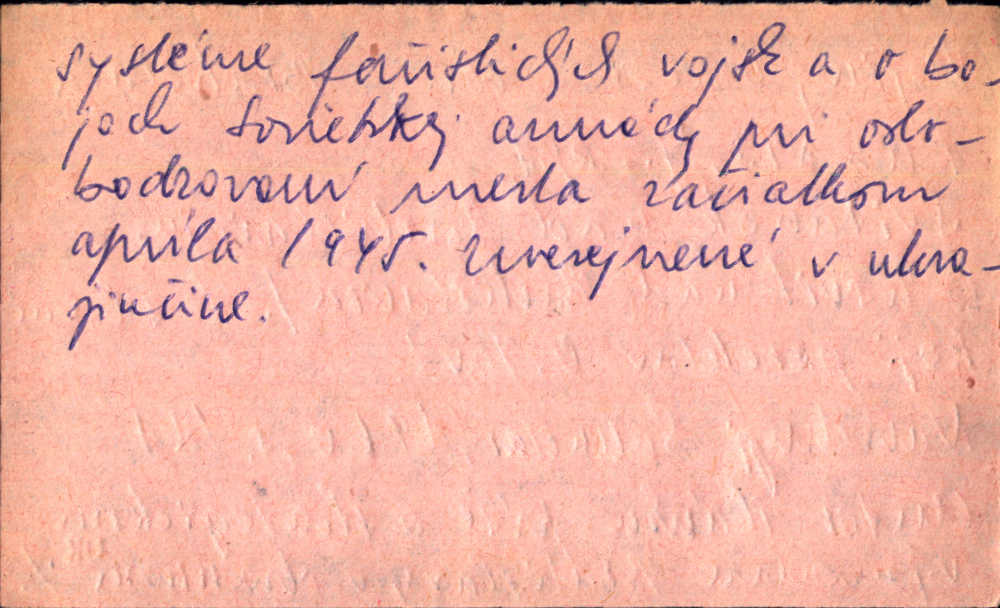 systéme fašistických vojsk a o bo-
joch Sovietskej armády pri oslo-
bodzovaní mesta začiatkom
apríla 1945. Uverejnené v ukra-
jinčine.